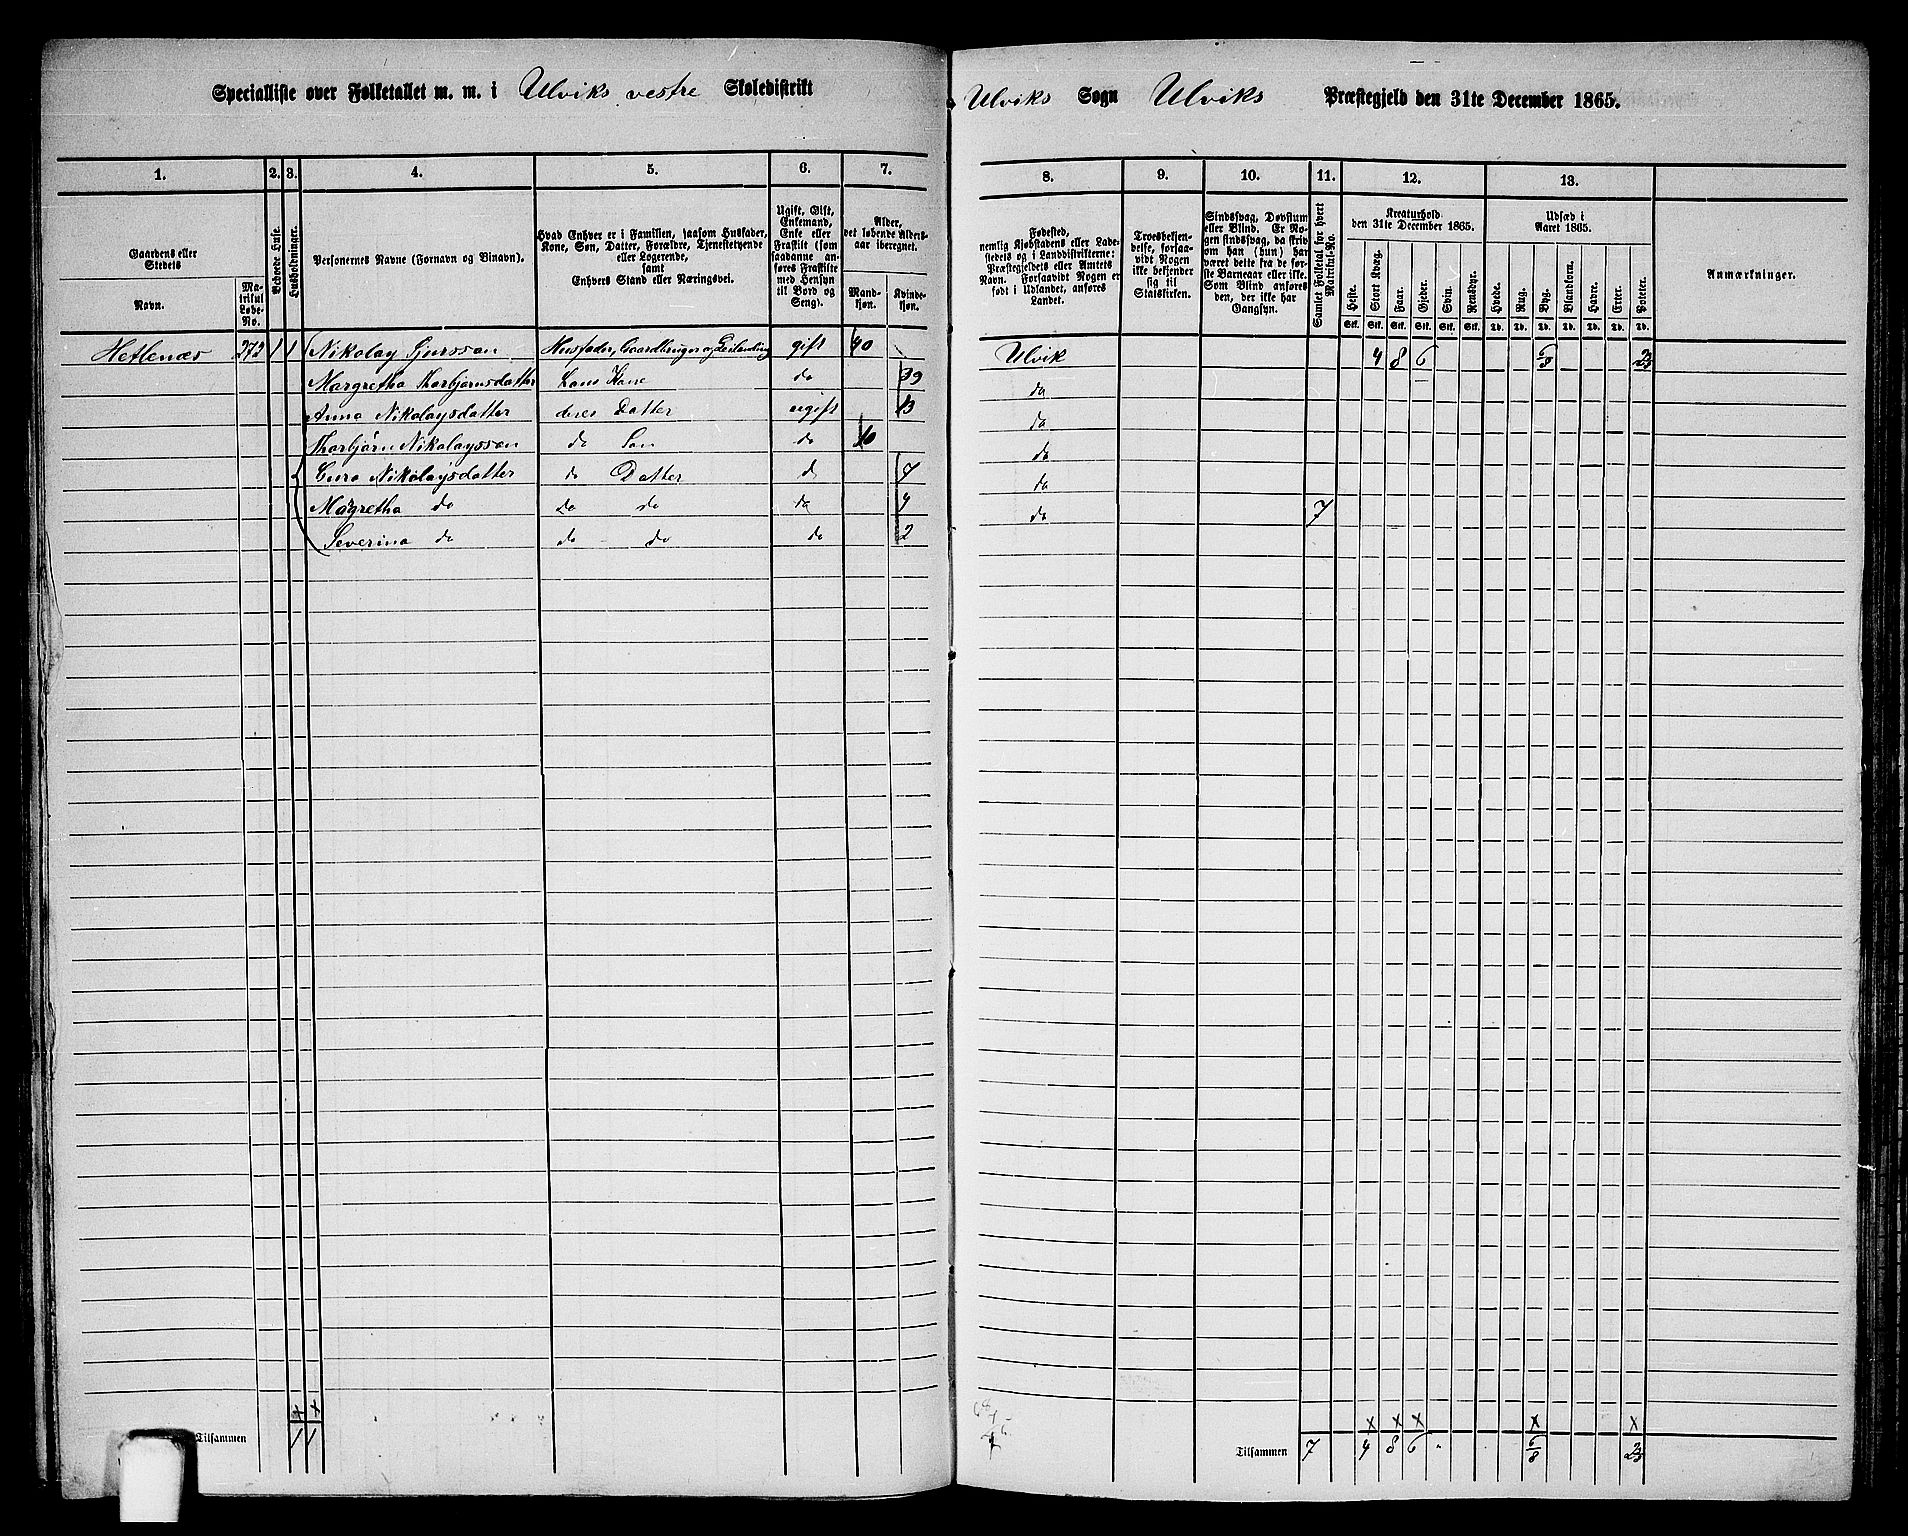 Specialliste over Folketallet m. m. i Ulviks vestre Skoledistrikt
Ulviks Sogn Ulviks Præstegjeld den 31te December 1865.
1. 2. 3. 4. 5. 6. 7.
Gaardens eller Steders
Navn.
Matrikul Løbe-No.
Bebоede Huse.
Husholdninger.
Personernes Navne (Fornavn og Binavn).
Hvad Enhver er i Familien, saasom Husfader, Kone, Søn, Datter, Forældre, Tjenestetyende eller Logerende, samt Enhvers Stand eller Næringsvei.
Ugift, Gift, Enkemand, Enke eller Fraskilt (som saadanne anføres Fraskilte med Hensyn til Bord og Seng).
Alder, det løbende Aldersaar iberegnet.
Mandkjøn. Kvindekjøn.
8. 9. 10. 11. 12. 13.
Fødested, nemlig Kjøbstadens eller Ladestedets og i Landdistrikterne: Præstegjeldets eller Amtets Navn. Forsaavidt Nogen er født i Udlandet, anføres Landet.
Troesbekjendelse, forsaavidt Nogen ikke bekjender sig til Statskirken.
Sindssvag, Døvstum eller Blind. Er Nogen sindssvag, da skrives om han (hun) har været dette fra de første Barneaar eller ikke. Som Blind anføres den, der ikke har Gangsyn.
Samlet Folketal for hvert Matrikul-No.
Kreaturhold den 31te December 1865.
Heste. Stort Kvæg. Faar. Gjeder. Svin. Rensdyr.
Stk. Stk. Stk. Stk. Stk. Stk.
Udsæd i Aaret 1865.
Hvede. Rug. Byg. Blandkorn. Havre. Erter. Poteter.
Td. Td. Td. Td. Td. Td. Td.
Anmærkninger.
Hetlenæs 272 1 1 Nikolay Sjursson Husfader, Gaardbruger og Leilending gift 40 Ulvik 4 8 6 6/8
Margretha Thorbjørnsdatter hans Kone do 39 do
Anna Nikolaysdatter deres Datter ugift 13 do
Thorbjørn Nikolaysson do Søn do 10 do
Nikolaysdatter do Datter d 7 do
Magretha do do do do 4 do 7
Severina do do do do 2
Tilsammen 1 1
Tilsammen 7 4 8 6 6/8